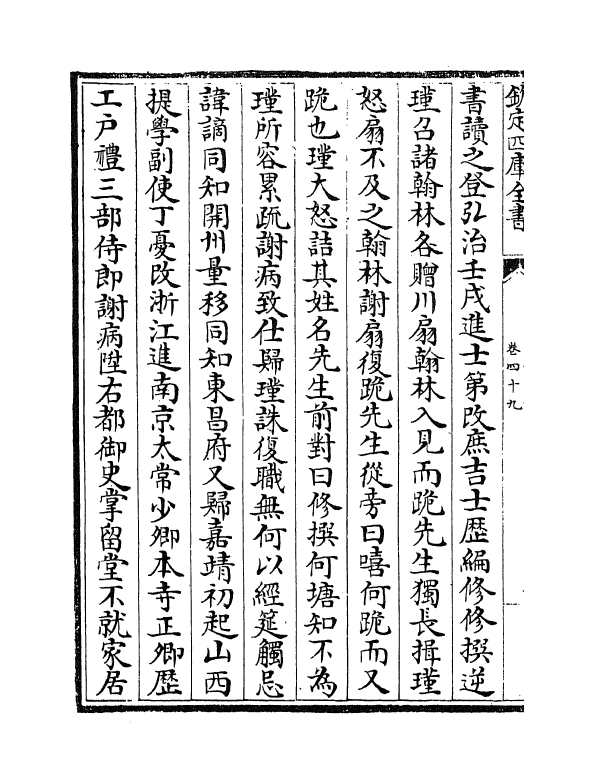 欽定四庫全書
卷四十九
書讀之登弘治壬戌進士第改庶吉士歴編修修撰逆
瑾召諸翰林各贈川扇翰林入見而跪先生獨長揖瑾
怒扇不及之翰林謝扇復跪先生從旁曰嘻何跪而又
跪也瑾大怒詰其姓名先生前對曰修撰何塘知不為
瑾所容累疏謝病致仕歸瑾誅復職無何以經筵觸忌
諱謫同知開州量移同知東昌府又歸嘉靖初起山西
提學副使丁憂改浙江進南京太常少卿本寺正卿歴
工户禮三部侍郎謝病陞右都御史掌留堂不就家居